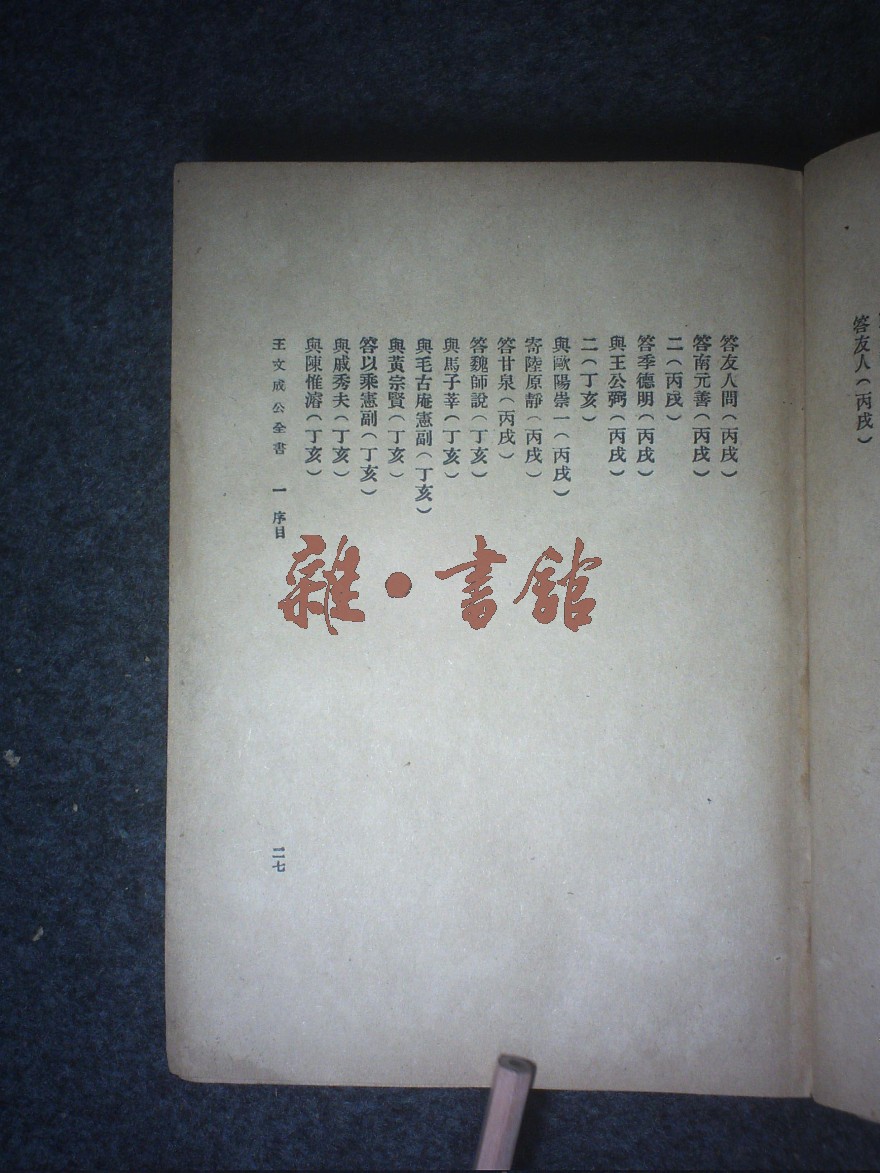 答友人（丙戌）
答友人問（丙戌）
答南元善（丙戌）
二（丙戌）
答季德明（丙戌）
與王公弼（丙戌）
二（丁亥）
與歐陽崇一（丙戌）
寄陸原靜（丙戌）
答甘泉（丙戌）
答魏師說（丁亥）
與馬子莘（丁亥）
與毛古庵憲副（丁亥）
與黃宗賢（丁亥）
答以乘憲副（丁亥）
與戚秀夫（丁亥）
與陳惟濬（丁亥）
王文成公全書 一 序目
二七
雜·書館